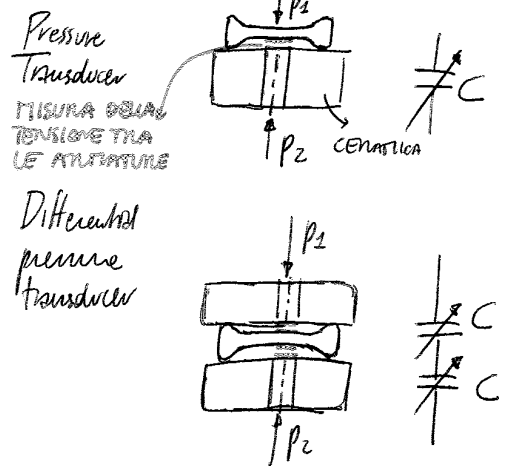 Pressure
Transducer
MISURA DELLA
TENSIONE TRA
LE ARMATURE
P1
P2
CERAMICA
C
Differential
pressure
transducer
P1
P2
C
C